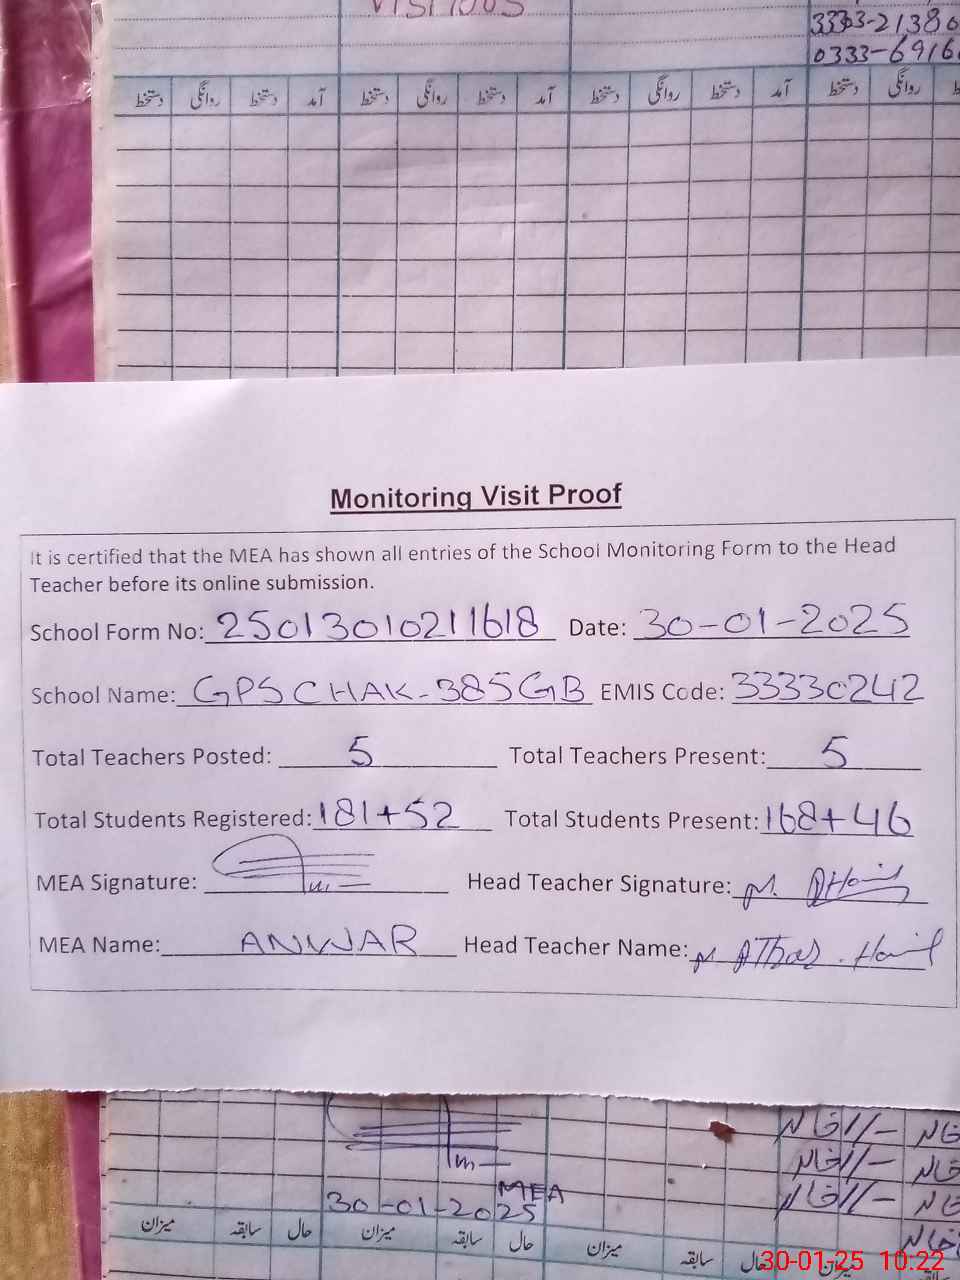 VISITORS
3303-21380
0333-6916
دستخط روانگی دستخط آمد دستخط روانگی دستخط آمد دستخط روانگی دستخط آمد دستخط روانگی
Monitoring Visit Proof
It is certified that the MEA has shown all entries of the School Monitoring Form to the Head
Teacher before its online submission.
School Form No: 25013010211618 Date: 30-01-2025
School Name: GPS CHAK-385GB EMIS Code: 33330242
Total Teachers Posted: 5 Total Teachers Present: 5
Total Students Registered: 181+52 Total Students Present: 168+46
MEA Signature: Head Teacher Signature: M.
MEA Name: ANWAR Head Teacher Name: M
MEA
30-01-2025
میزان سابقہ حال میزان سابقہ حال میزان سابقہ حال میزان
30-01-25 10:22